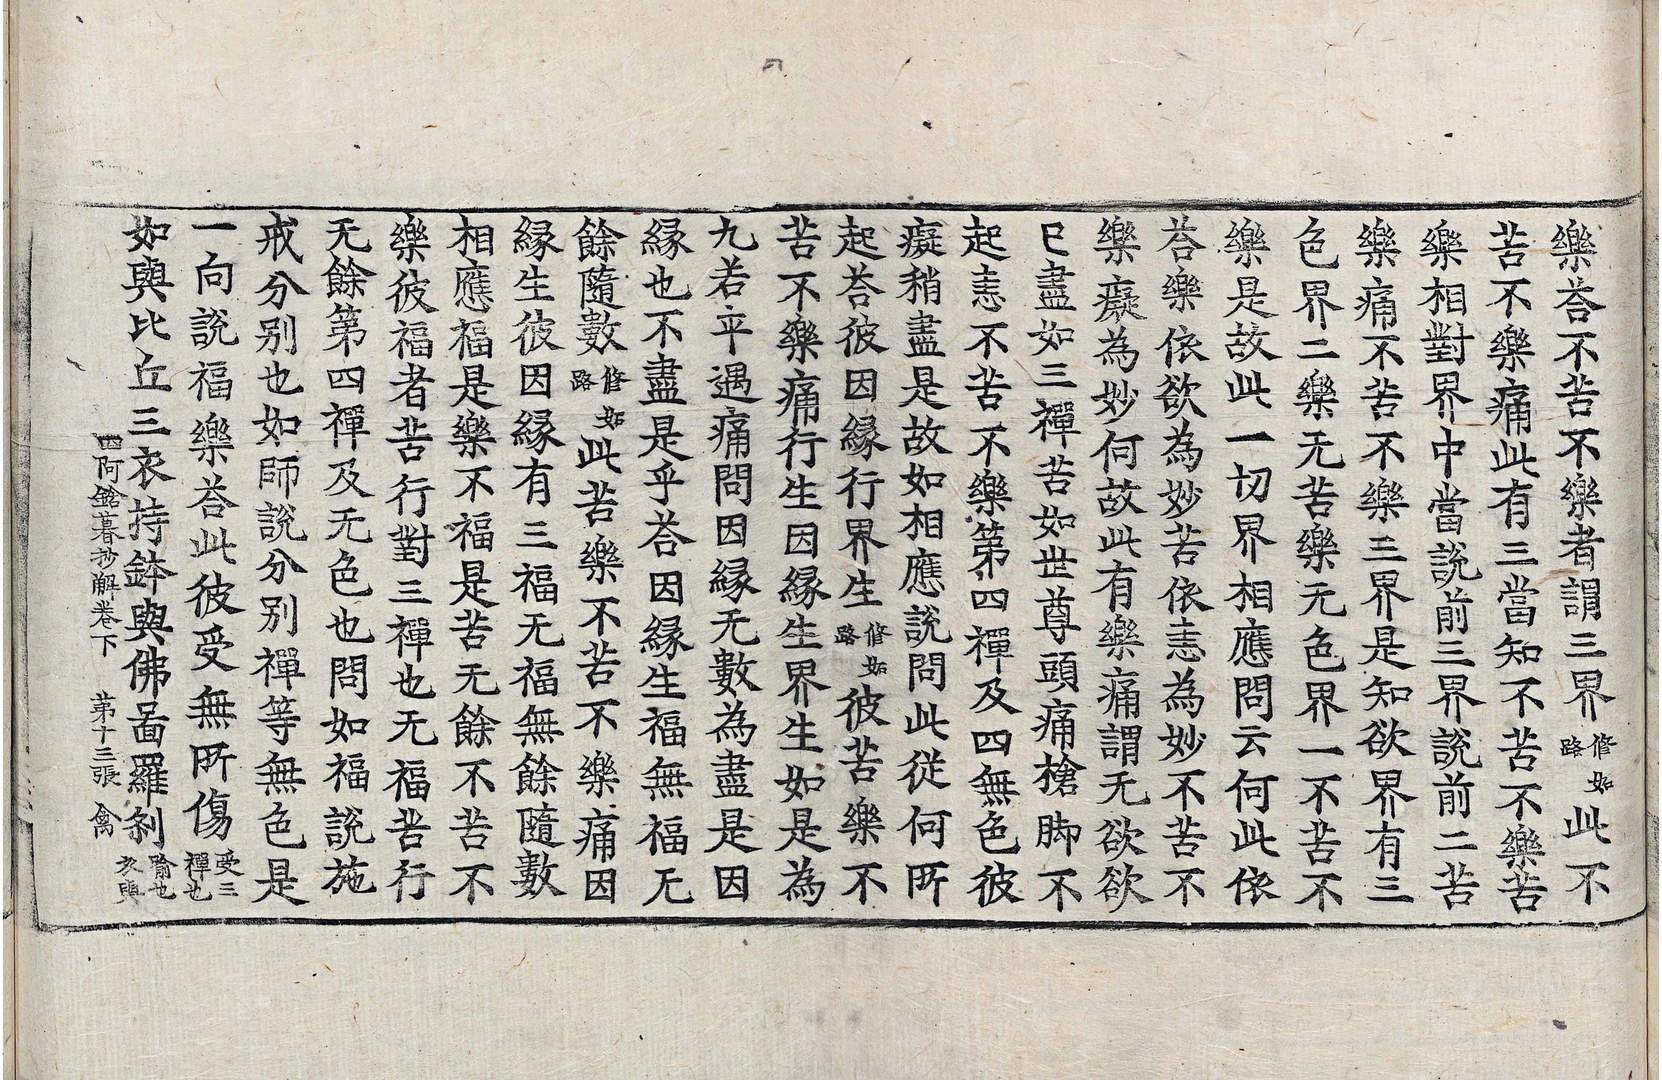 樂荅不苦不樂者謂三界修妬路此不
苦不樂痛此有三當知不苦不樂苦
樂相對界中當說前三界說前二苦
樂痛不苦不樂三界是知欲界有三
色界二樂无苦樂无色界一不苦不
樂是故此一切界相應問云何此依
荅樂依欲為妙苦依恚為妙不苦不
樂癡為妙何故此有樂痛謂无欲欲
已盡如三禪苦如世尊頭痛槍脚不
起恚不苦不樂第四禪及四無色彼
癡稍盡是故如相應說問此從何所
起荅彼因緣行界生修妬路彼苦樂不
苦不樂痛行生因緣生界生如是為
九若平遇痛問因緣无數為盡是因
緣也不盡是乎荅因緣生福無福无
餘隨數修妬路此苦樂不苦不樂痛因
緣生彼因緣有三福无福無餘隨數
相應福是樂不福是苦无餘不苦不
樂彼福者苦行對三禪也无福苦行
无餘第四禪及无色也問如福說施
戒分别也如師說分别禪等無色是
一向說福樂荅此彼受無所傷受三禪也
如與比丘三衣持鉢與佛啚羅剎喻也亥與
四阿鋡暮抄解卷下　第十三張　禽